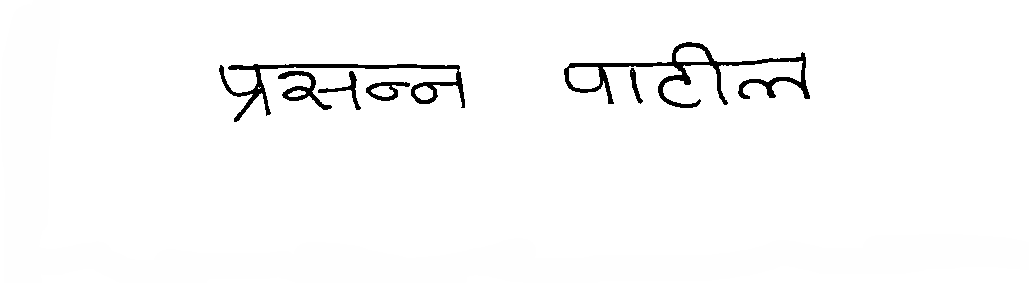 प्रसन्न पाटील